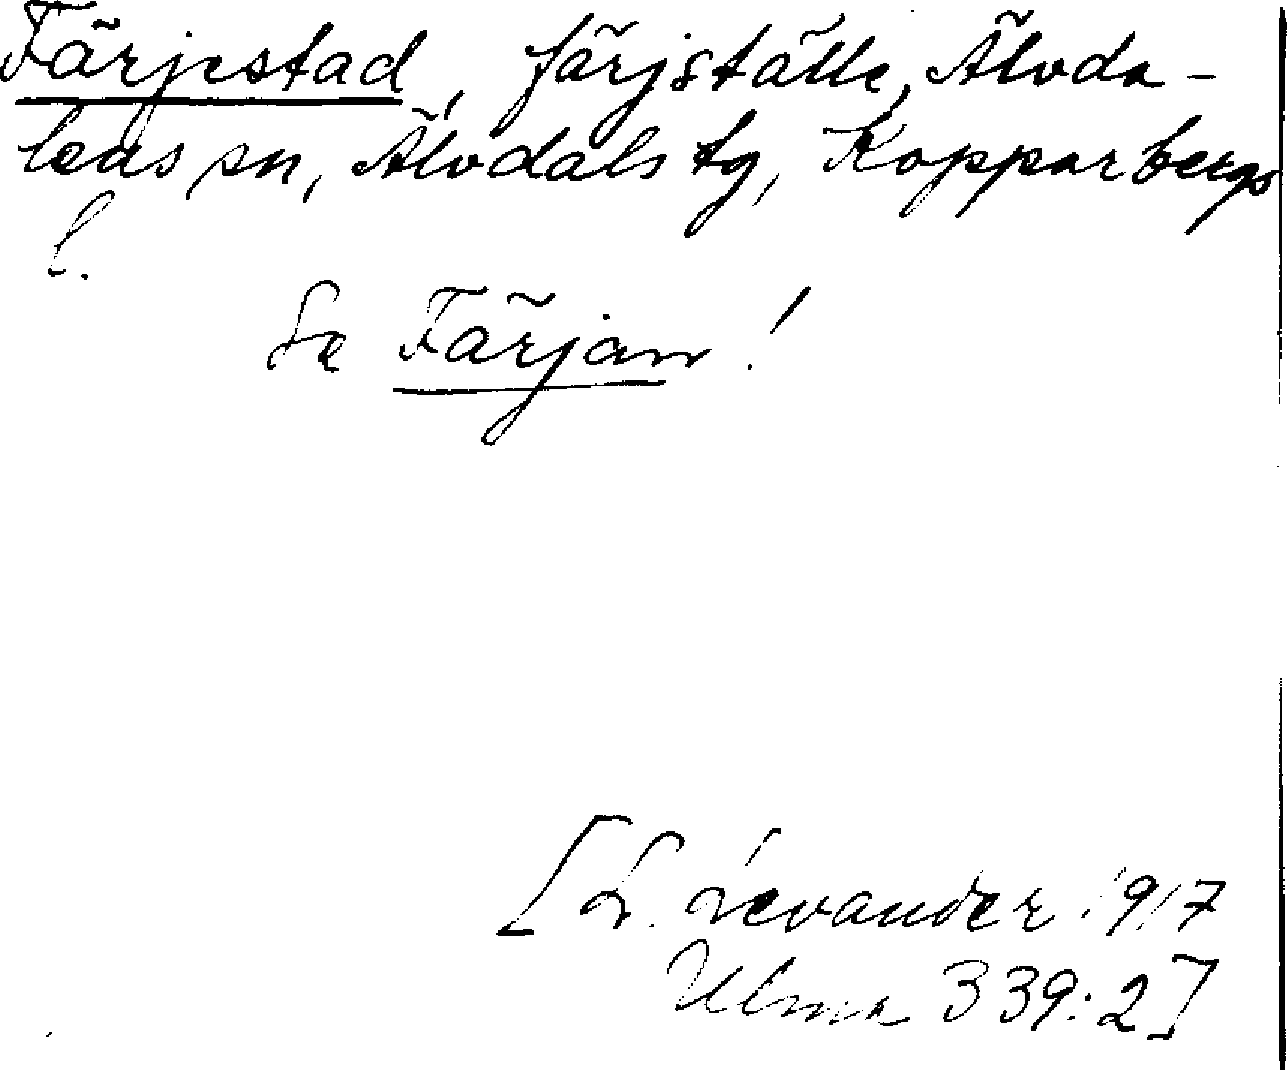 Färjestad, färjställe, Älvda-
lens sn, Älvdals tg, Kopparbergs
l.
Se Färjan!
[L. Levander 1917
Ulma 339:2]